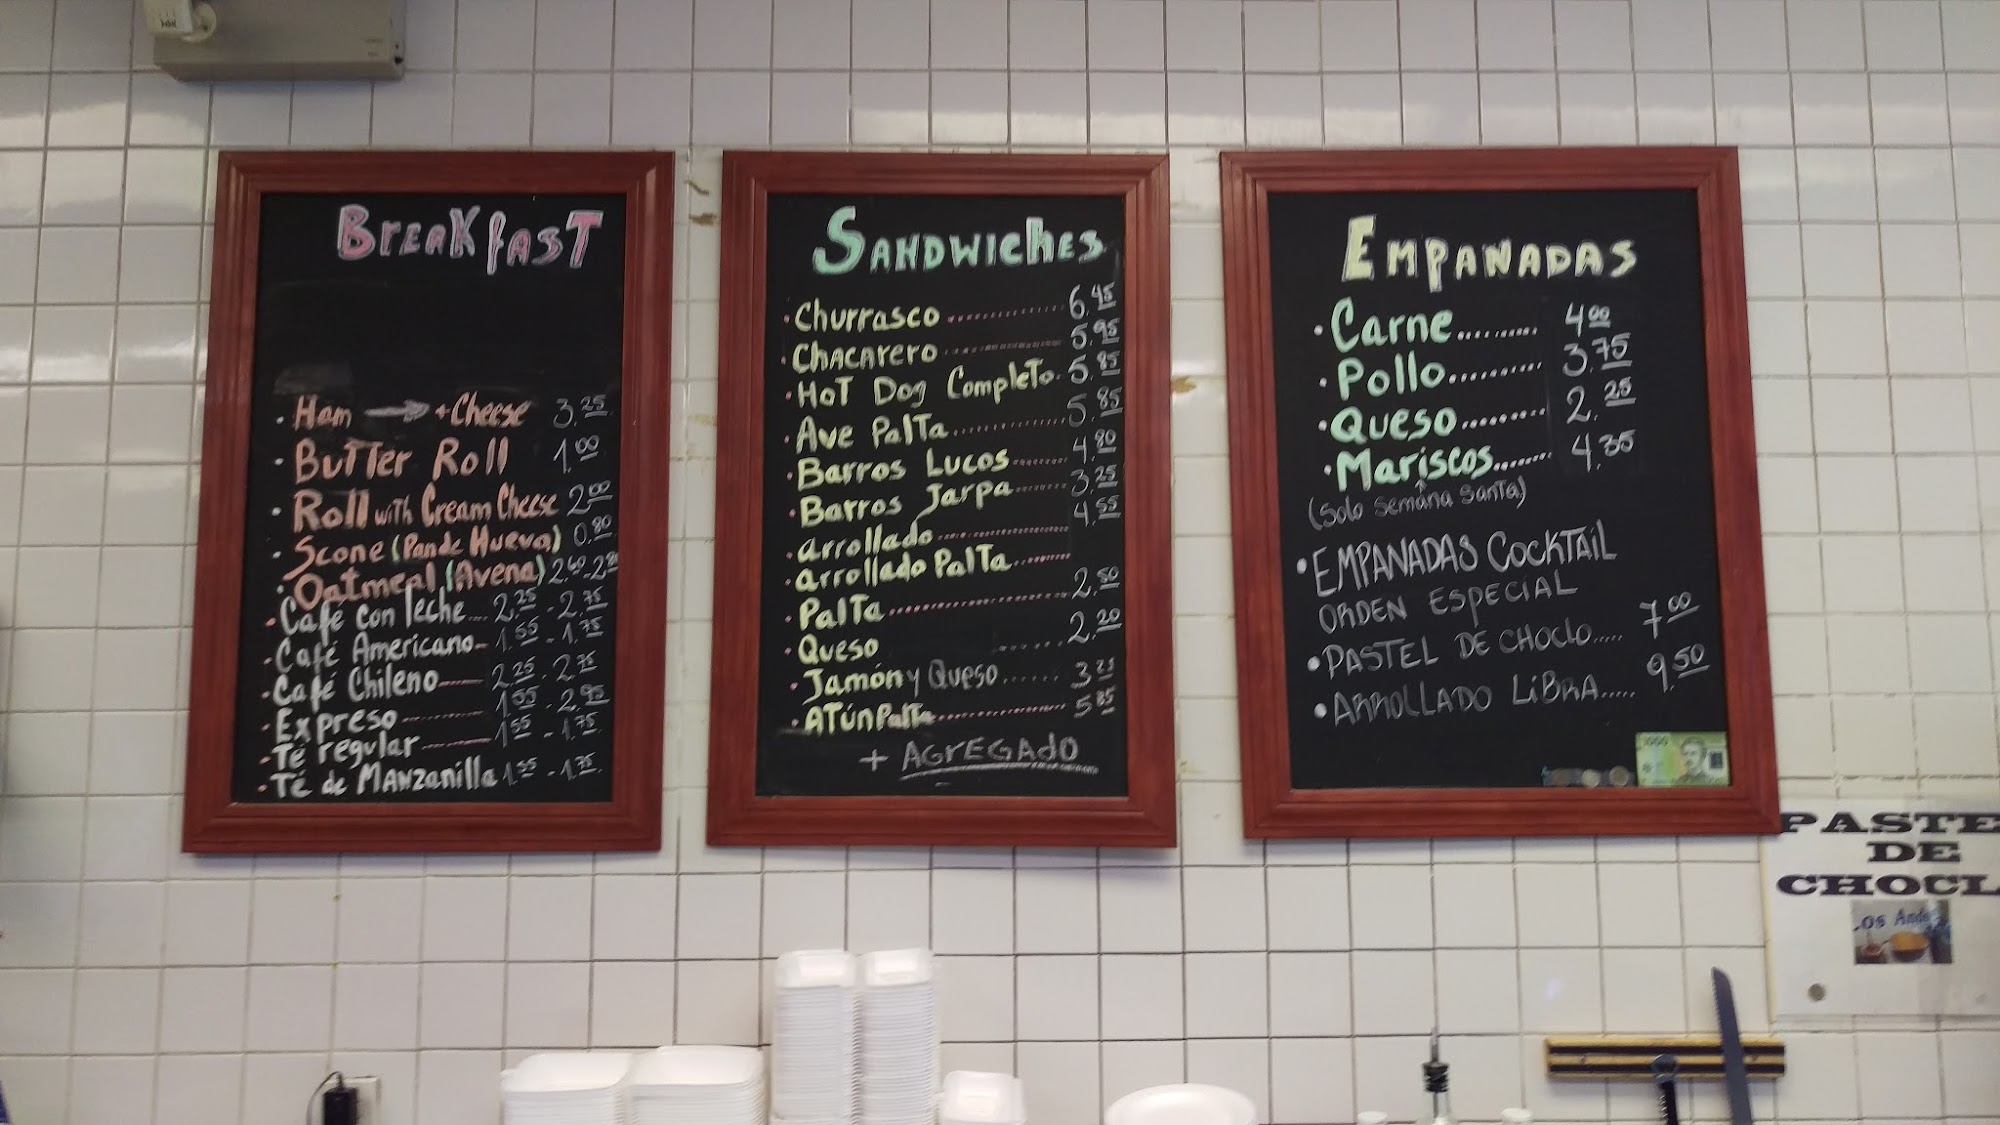 BreakfasT
• Ham → + Cheese 3.25
• BuTTer Roll 1.00
• Roll wiTh Cream Cheese 2.00
• Scone (Pan de Huevo) 0.80
• Oatmeal (Avena) 2.60-2.80
• Café con leche... 2.25 - 2.75
• Café Americano- 1.55 - 1.75
• Café Chileno 2.25 - 2.75
• Expreso 1.55 - 2.95
• Té regular 1.55 - 1.75
• Té de MANzanilla 1.55 - 1.75
SANDWIChES
• Churrasco 6.45
• ChACArero 5.95
• HoT Dog CompleTo 5.85
• Ave PalTa 5.85
• Barros Lucos 4.80
• Barros Jarpa 3.25
• arrollado 4.55
• arrollado PalTa
• PalTa 2.50
• Queso 2.20
• Jamón y Queso 3.25
• ATún Palta 5.85
+ AGREGAdO
EMPANADAS
• Carne 4.00
• Pollo 3.75
• Queso 2.25
• Mariscos 4.35
(Solo semana santa)
• EMPANADAS COCKTAiL
ORDEN ESPECiAL
• PASTEL DE CHOCLO..... 7.00
• ARROLLADO LiBRA..... 9.50
1000
PASTE
DE
CHOCL
Los Ande